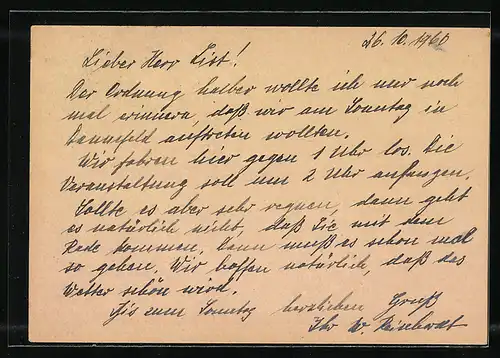 26. 10. 1960
Lieber Herr List!
Der Ordnung halber wollte ich nur noch
mal erinnern, daß wir am Sonntag in
auftreten wollten.
Wir fahren hier gegen 1 Uhr los. Die
Veranstaltung soll um 2 Uhr anfangen.
Sollte es aber sehr regnen, dann geht
es natürlich nicht, daß Sie mit dem
Rade kommen. Dann muß es schon mal
so gehen. Wir hoffen natürlich, daß das
Wetter schön wird.
Bis zum Sonntag herzlichen Gruß
Ihr W.